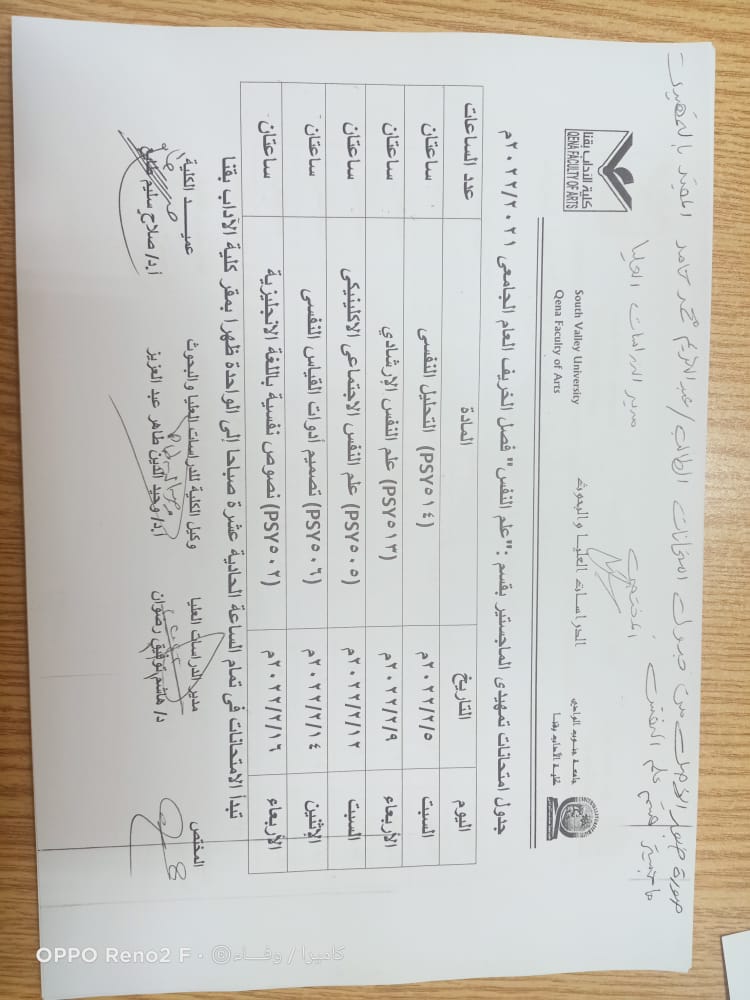 صورة طبق الأصل من جدول امتحانات الطالب / عبد الكريم محمد حامد المقيد بالتمهيدى
ماجستير بقسم علم النفس
المختص
مدير الدراسات العليا
جامعة جنوب الوادي
كلية الآداب بقنا
الدراسات العليا والبحوث
South Valley University
Qena Faculty of Arts
كلية الآداب بقنا
QENA FACULTY OF ARTS
جدول امتحانات تمهيدى الماجستير بقسم : "علم النفس" فصل الخريف العام الجامعى ٢٠٢٢/٢٠٢١م
اليوم التاريخ المادة عدد الساعات
السبت ٢٠٢٢/٢/٥م (PSY٥١٤) التحليل النفسى ساعتان
الأربعاء ٢٠٢٢/٢/٩م (PSY٥١٣) علم النفس الإرشادي ساعتان
السبت ٢٠٢٢/٢/١٢م (PSY٥٠٥) علم النفس الاجتماعى الاكلينيكى ساعتان
الإثنين ٢٠٢٢/٢/١٤م (PSY٥٠٦) تصميم أدوات القياس النفسى ساعتان
الأربعاء ٢٠٢٢/٢/١٦م (PSY٥٠٢) نصوص نفسية باللغة الانجليزية ساعتان
تبدأ الامتحانات فى تمام الساعة الحادية عشرة صباحا إلى الواحدة ظهرا بمقر كلية الآداب بقنا
المختص مدير الدراسات العليا وكيل الكلية للدراسات العليا والبحوث عميد الكلية
د/ هاشم توفيق رضوان أ.د/ وحيد الدين طاهر عبد العزيز أ.د/ صلاح سليم طايع
OPPO Reno2 F · ©كاميرا / وفاء